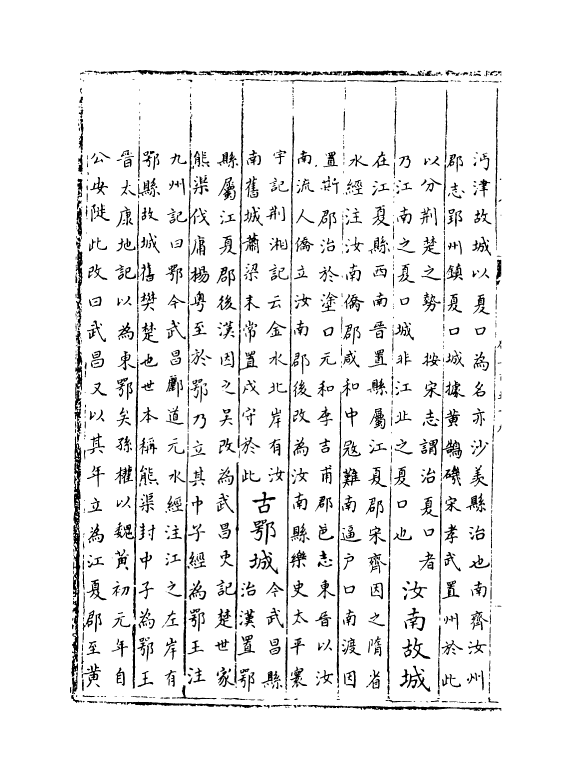 沔津故城以夏口為名亦沙羡縣治也南齊汝州
郡志郢州鎮夏口城據黃鵠磯宋孝武置州於此
以分荆楚之勢　按宋志謂治夏口者
乃江南之夏口城非江北之夏口也
汝南故城
在江夏縣西南晉置縣屬江夏郡宋齊因之隋省
水經注汝南僑郡咸和中寇難南逼户口南渡因
置斯郡治於塗口元和李吉甫郡邑志東晉以汝
南流人僑立汝南郡後改為汝南縣樂史太平寰
宇記荆湘記云金水北岸有汝
南舊城蕭梁末常置戍守於此
古鄂城
今武昌縣
治漢置鄂
縣屬江夏郡後漢因之吴改為武昌史記楚世家
熊渠伐庸楊粤至於鄂乃立其中子經為鄂王注
九州記曰鄂今武昌酈道元水經注江之左岸有
鄂縣故城舊樊楚也世本稱熊渠封中子為鄂王
晉太康地記以為東鄂矣孫權以魏黃初元年自
公安徙此改曰武昌又以其年立為江夏郡至黃